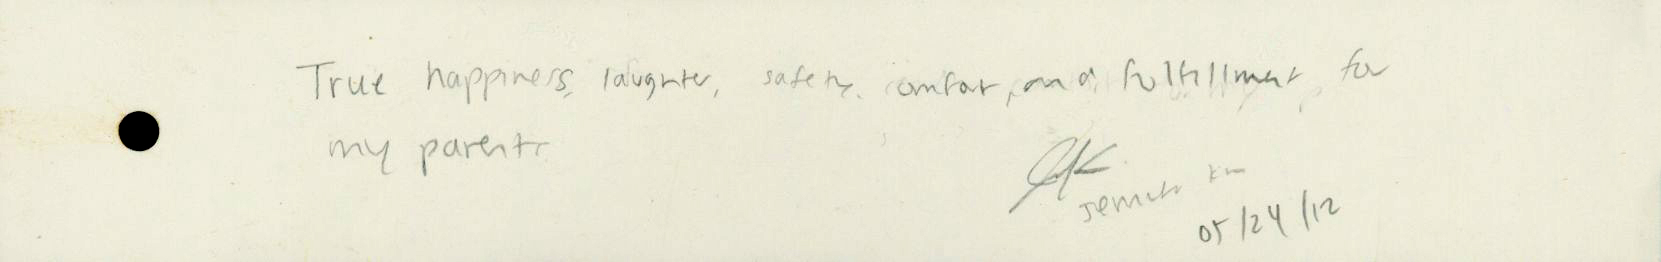 True happiness, laughter, safety, comfort, and fulfillment for
my parents
JK
05/24/12